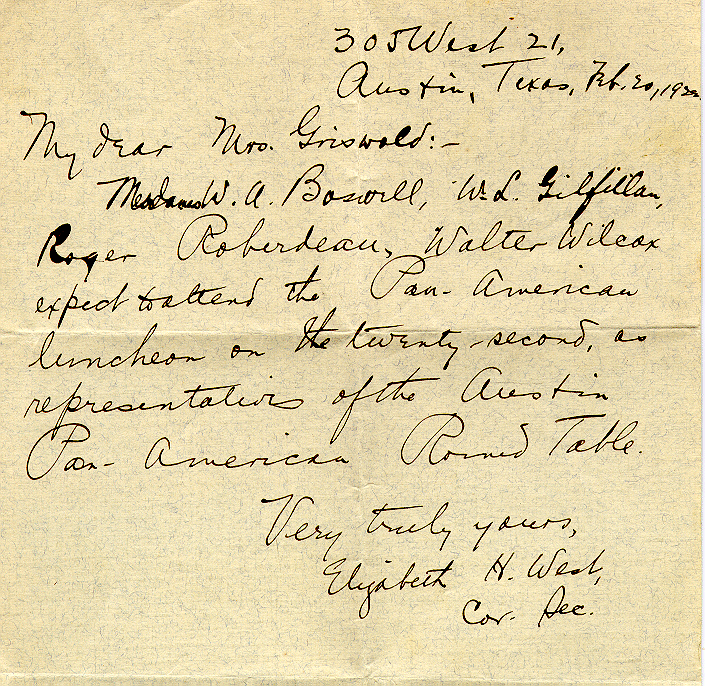 305 West 21,
Austin, Texas, Feb. 20, 192
My dear Mrs. Griswold:-
Mesdames W. A. Boswell, Wm L. Gilfillan,
Roger Roberdeau, Walter Wilcox
expect to attend the Pan-American
luncheon on the twenty-second, as
representatives of the Austin
Pan-American Round Table.
Very truly yours,
Elizabeth H. West,
Cor. Sec.